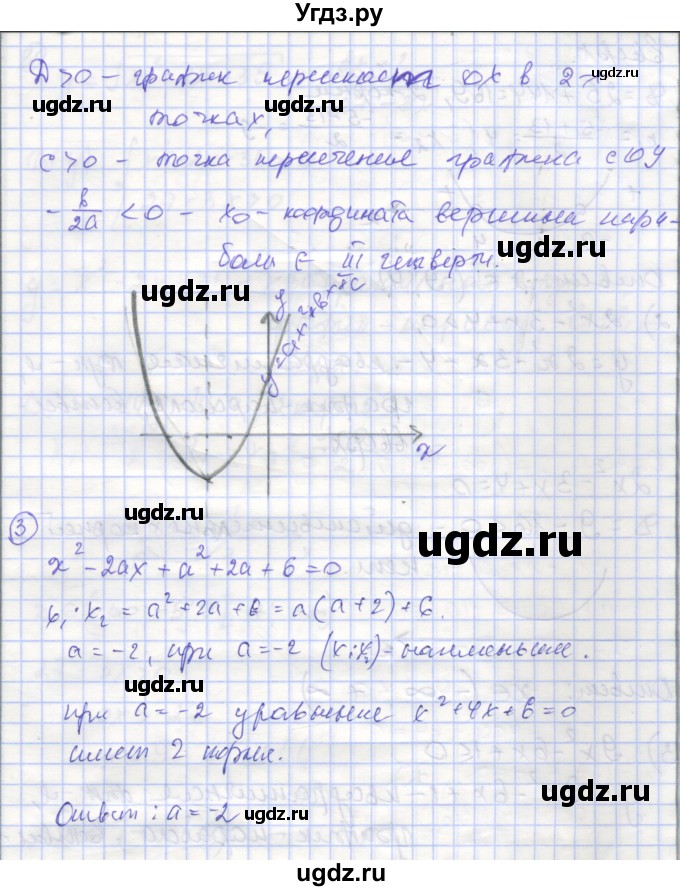 Угдз.ру
D>0 – график пересекает OX в 2-х
ugdz.ru
ugdz.ru
ugdz.ru
точках,
c>0 – точка пересечения графика с OY
- b/2a < 0 – x₀ – координата вершины пара-
ugdz.ru
болы ∈ III четверти.
ugdz.ru
y
y=ax²+bx+c
x
ugdz.ru
3
ugdz.ru
x² - 2ax + a² + 2a + 6 = 0
x₁·x₂ = a² + 2a + 6 = a(a+2) + 6.
a = -2, при a = -2 (x₁·x₂) – наименьшее.
ugdz.ru
при a = -2 уравнение x² + 4x + 6 = 0
имеет 2 корня.
ugdz.ru
Ответ: a = -2
ugdz.ru
ugdz.ru